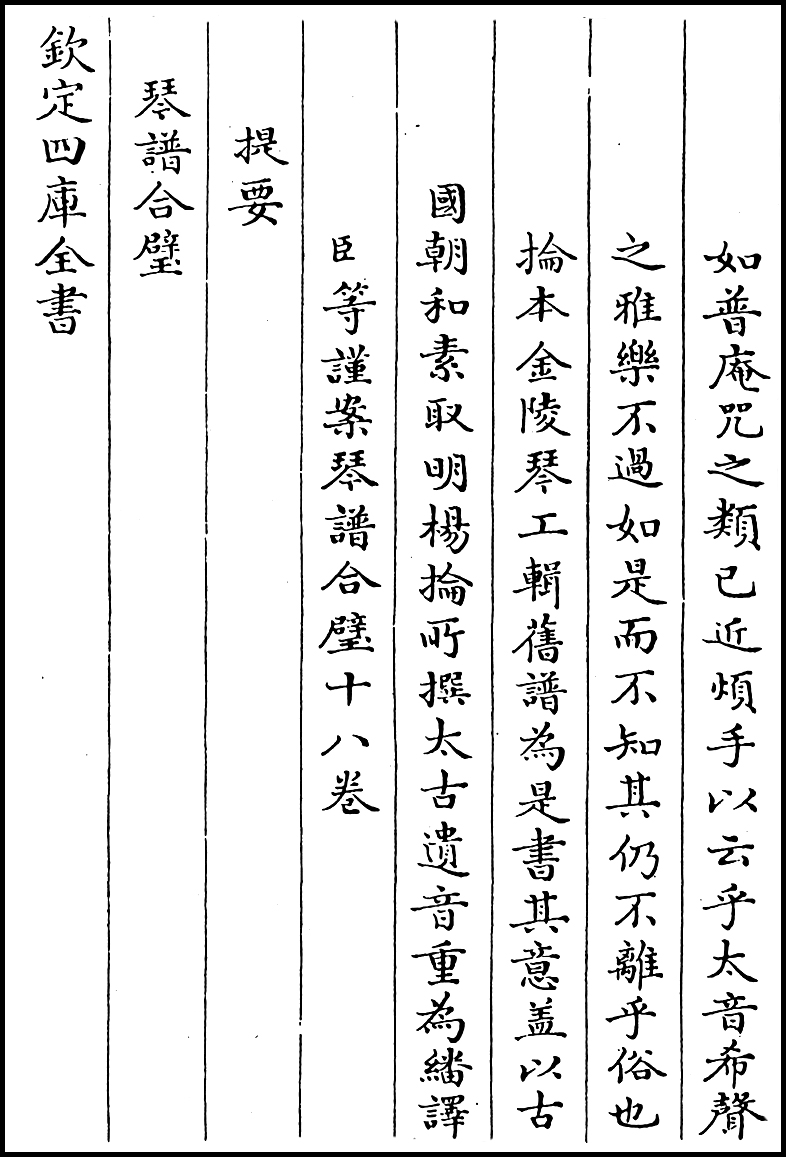 欽定四庫全書
琴譜合璧
提要
臣等謹案琴譜合璧十八卷
國朝和素取明楊掄所撰太古遺音重為繙譯
掄本金陵琴工輯舊譜為是書其意盖以古
之雅樂不過如是而不知其仍不離乎俗也
如普庵咒之類已近煩手以云乎太音希聲